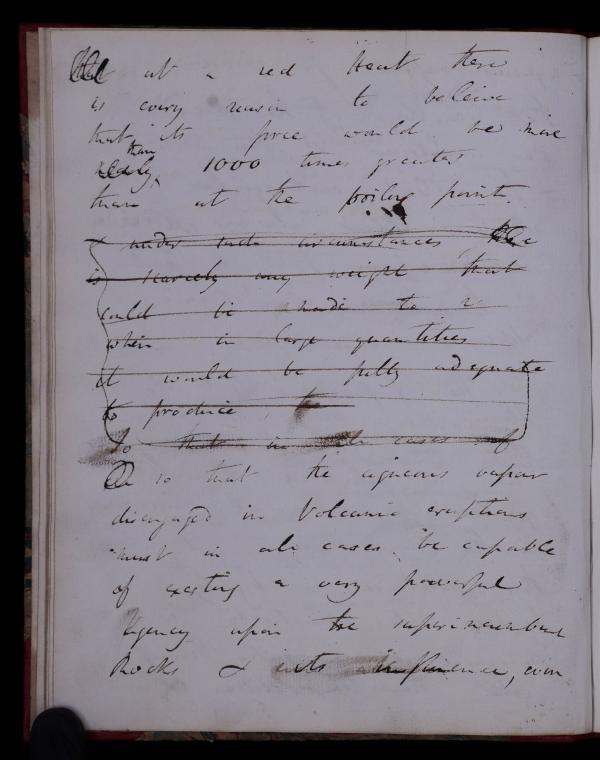 that at a red Heat there
is every reason to beleive
that its force would be more
than
nearly 1000 times greater
than at the boiling point.
& under such circumstances there
is scarcely any weight that
could be made to
when in large quantities
it would be fully adequate
to produce, the
So that in all cases of
so that the aqueous vapour
disengaged in Volcanic eruptions
must in all cases be capable
of exerting a very powerful
Agency upon the superincumbent
Rocks & its influence, even